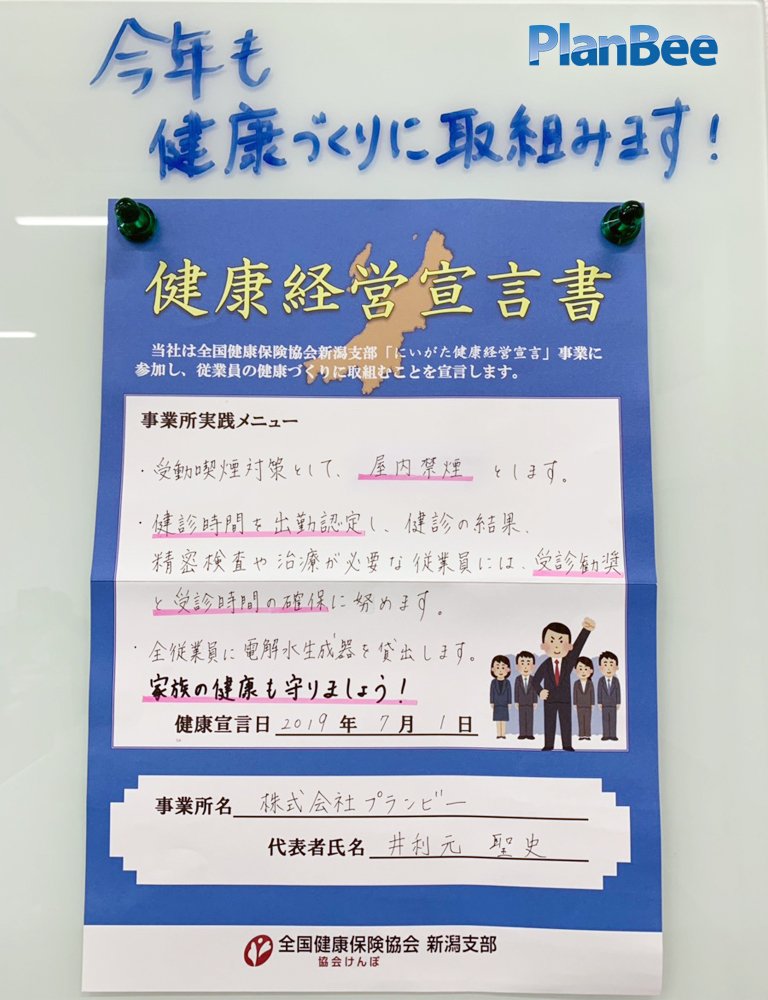 PlanBee
今年も
健康づくりに取組みます!
健康経営宣言書
当社は全国健康保険協会新潟支部「にいがた健康経営宣言」事業に
参加し、従業員の健康づくりに取組むことを宣言します。
事業所実践メニュー
・受動喫煙対策として、屋内禁煙とします。
・健診時間を出勤認定し、健診の結果、
精密検査や治療が必要な従業員には、受診勧奨
と受診時間の確保に努めます。
・全従業員に電解水生成器を貸出します。
家族の健康も守りましょう!
健康宣言日 2019 年 7 月 1 日
事業所名 株式会社プランビー
代表者氏名 井利元 聖史
全国健康保険協会 新潟支部
協会けんぽ